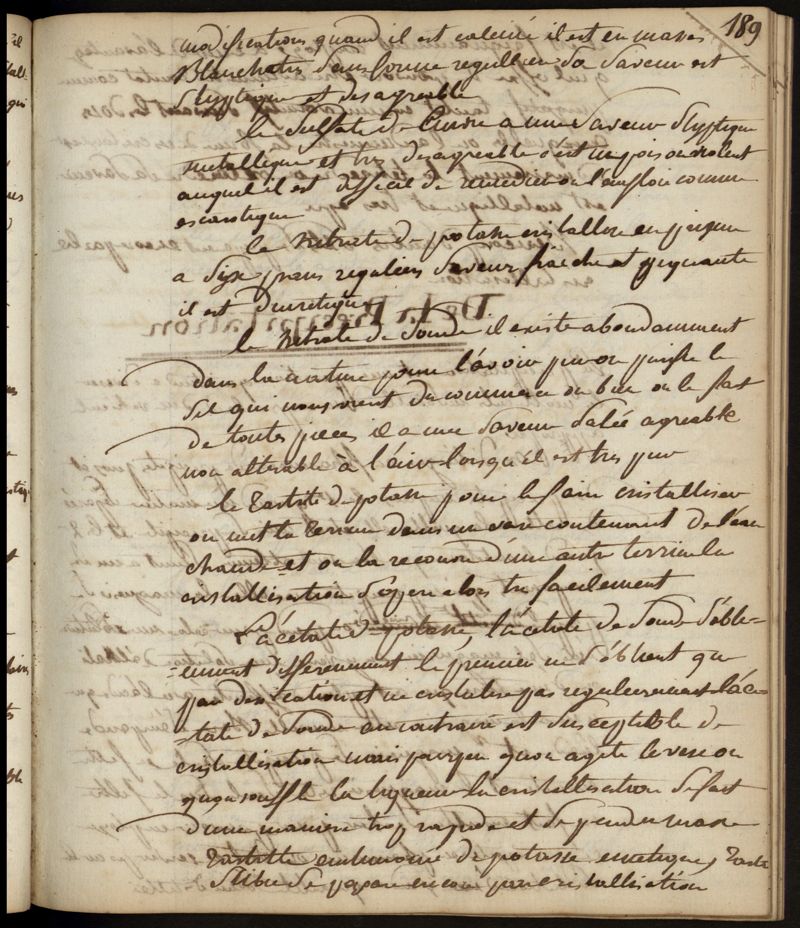 189
modifications quand il est calciné il est en masses
Blanchatres sans forme regulliere Sa Saveur est
Styptique et desagreable
le Sulfate de Cuivre a une Saveur Styptique
metallique et tres desagreable c'est un poison violent
auquel il est difficil de remedier on l'emploie comme
escarotique
le Nitrate de potasse cristallise en prisme
a Six pans reguliers Saveur fraiche et piquante
il est Diuretique
le Nitrate de Soude il existe abondamment
dans la nature pour l'avoir pur on purifie le
Sel qui nous vient du commerce ou bien on le fait
de toutes pieces il a une Saveur Salée agreable
non alterable à l'air lorsqu'il est tres pur
le Tartrite de potasse pour le faire cristalliser
on met la Terrine dans un vase contenant de l'eau
chaude et on la recouvre d'une autre terrine la
cristallisation s'opere alors tres facilement
L'acétate de potasse, l'acétate de Soude S'obti-
=ennent differemment le premier ne S'obtient que
par dessication et ne cristalise pas regulierement l'acé
=tate de Soude au contraire est Susceptible de
cristallisation mais pour peu qu'on agite le vase ou
qu'on souffle la liqueur la cristallisation Se fait
d'une maniere trop rapide et Se prend en masse
Tartrite antimonié de potasse emetique, Tartre
Stibié Se prepare encore par cristallisation